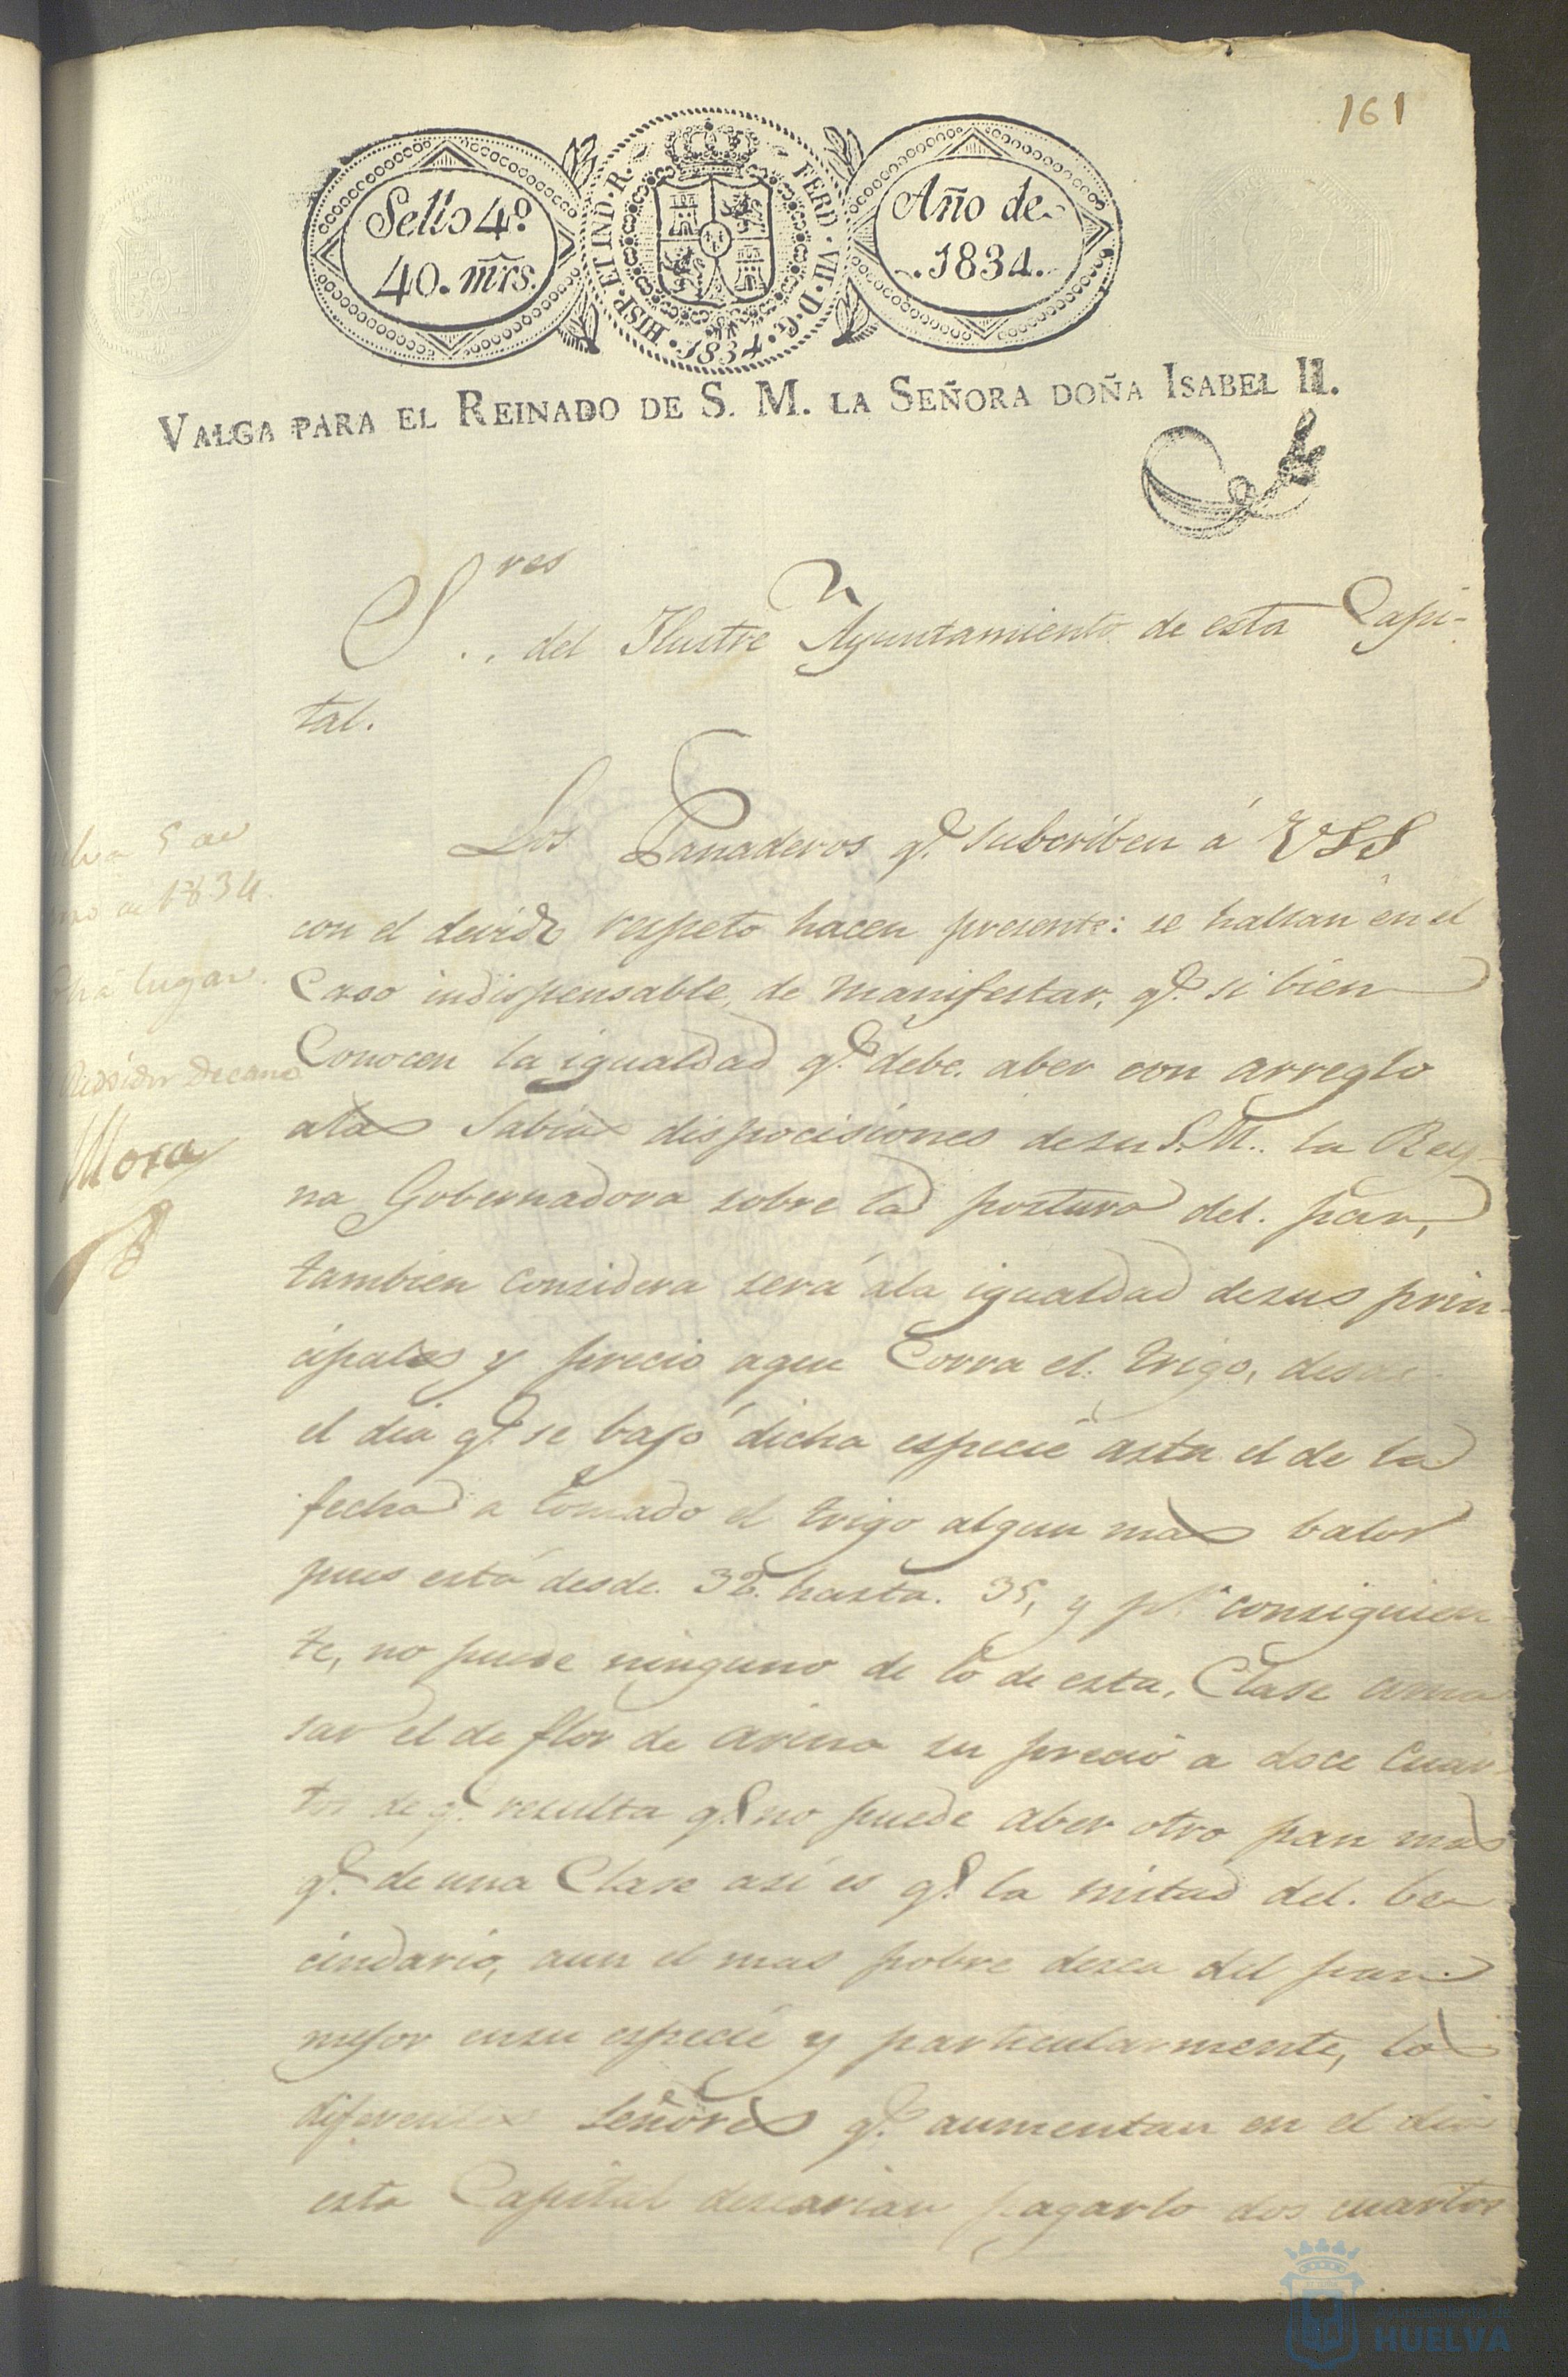 161
Sello 4º.
40. mrs.
HISP. ET IND. R. FERD. VII. D. G. 1834.
Año de
.1834.
VALGA PARA EL REINADO DE S. M. LA SEÑORA DOÑA ISABEL II.
Sres
.. del Ilustre Ayuntamiento de esta Capi-
tal.
Los Panaderos q.e subcriben á VSS
con el devido respeto hacen presente: se hallan en el
Caso indispensable, de manifestar, q.e si bien
Conocen la igualdad q.e debe. aber con arreglo
alas Sabias dispocisiones de su S.M.. la Rey-
na Gobernadora sobre la postura del. pan,
tambien considera será ála igualdad desus prin-
cipales y precio aque Corra el. trigo, desde
el dia q.e se bajó dicha especie asta el de la
fecha a tomado el trigo algun mas balor
pues está desde. 32. hasta. 35, y p.r consiguien-
te, no puede ninguno de lo de esta, Clase ama-
sar el de flor de arina su precio a doce cuar-
tos de q.e resulta q.e no puede aber otro pan mas
q.e de una Clase asi es q.e la mitad del. be-
cindario, aun el mas pobre desea del pan
mejor ensu especie y particularmente, los
diferentes señores q.e aumentan en el dia
esta Capital desearian pagarlo dos cuartos
5 de
de 1834.
lugar.
Decano
Mora
HUELVA